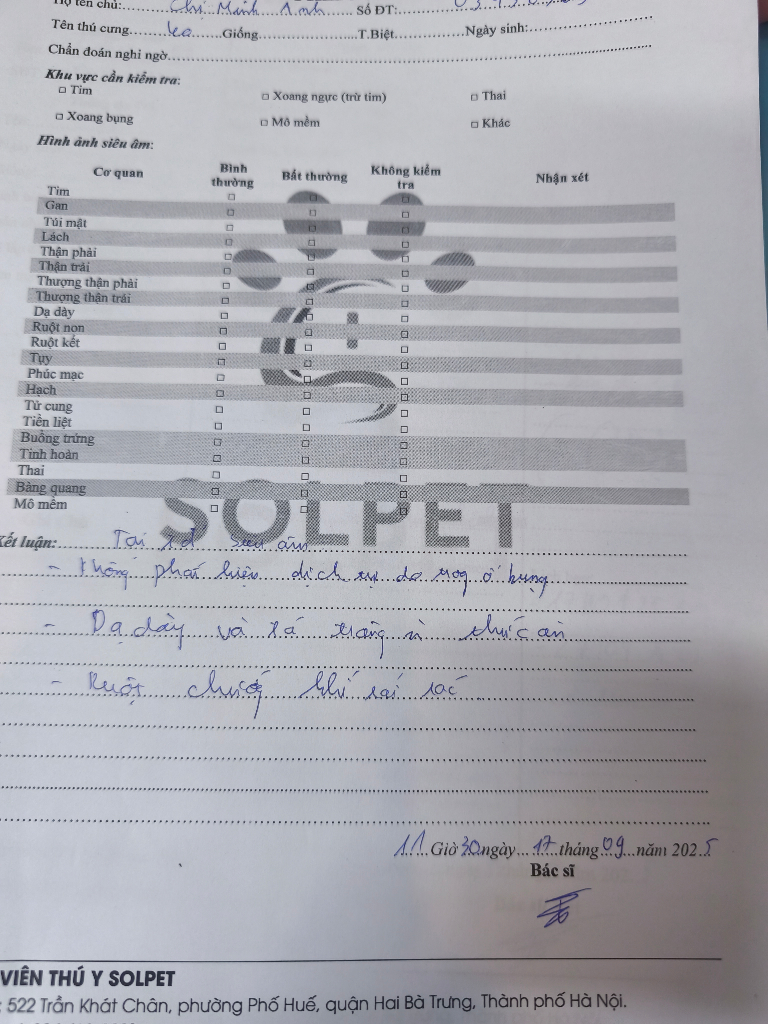 Họ tên chủ: Chị Minh Anh Số ĐT:
Tên thú cưng Ko Giống T.Biệt Ngày sinh:
Chẩn đoán nghi ngờ
Khu vực cần kiểm tra:
□ Tim □ Xoang ngực (trừ tim) □ Thai
□ Xoang bụng □ Mô mềm □ Khác
Hình ảnh siêu âm:
Cơ quan Bình thường Bất thường Không kiểm tra Nhận xét
Tim □ □ □
Gan □ □ □
Túi mật □ □ □
Lách □ □ □
Thận phải □ □ □
Thận trái □ □ □
Thượng thận phải □ □ □
Thượng thận trái □ □ □
Dạ dày □ □ □
Ruột non □ □ □
Ruột kết □ □ □
Tụy □ □ □
Phúc mạc □ □ □
Hạch □ □ □
Tử cung □ □ □
Tiền liệt □ □ □
Buồng trứng □ □ □
Tinh hoàn □ □ □
Thai □ □ □
Bàng quang □ □ □
Mô mềm □ □ □
SOLPET
Kết luận: Tại siêu âm
- Không phát hiện dịch tự do ổ bụng
- Dạ dày và thức ăn
- Ruột chướng khí rải rác
11 Giờ 30 ngày 17 tháng 09 năm 2025
Bác sĩ
VIÊN THÚ Y SOLPET
: 522 Trần Khát Chân, phường Phố Huế, quận Hai Bà Trưng, Thành phố Hà Nội.